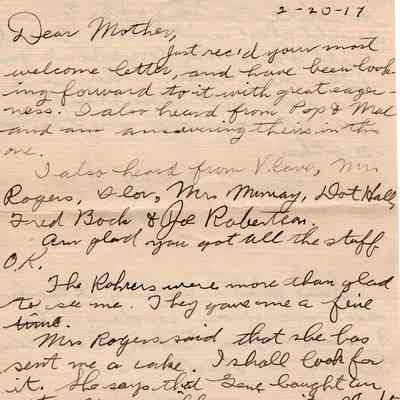 2-20-17
Dear Mother,
Just rec'd your most
welcome letter, and have been look-
ing forward to it with great eager-
ness. I also heard from Pop & Mal
and am answering theirs in this
one.
I also heard from V. Cave, Mrs
Rogers, Flor, Mrs Murray, Dot Hall,
Fred Bock & Joe Robertson.
Am glad you got all the stuff
O.K.
The Rohrers were more than glad
to see me. They gave me a fine
time.
Mrs Rogers said that she has
sent me a cake. I shall look for
it. She says that Gene bought an